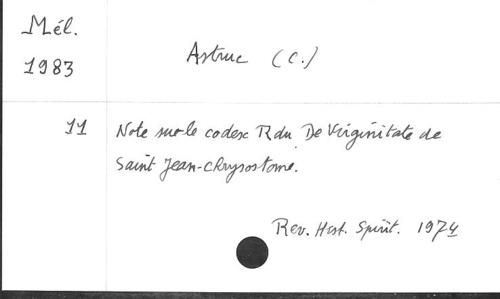 Mél.
1983
Astruc (C.)
11 Note sur le codex R du De Virginitate de
Saint Jean-Chrysostome.
Rev. Hist. Spirit. 1974